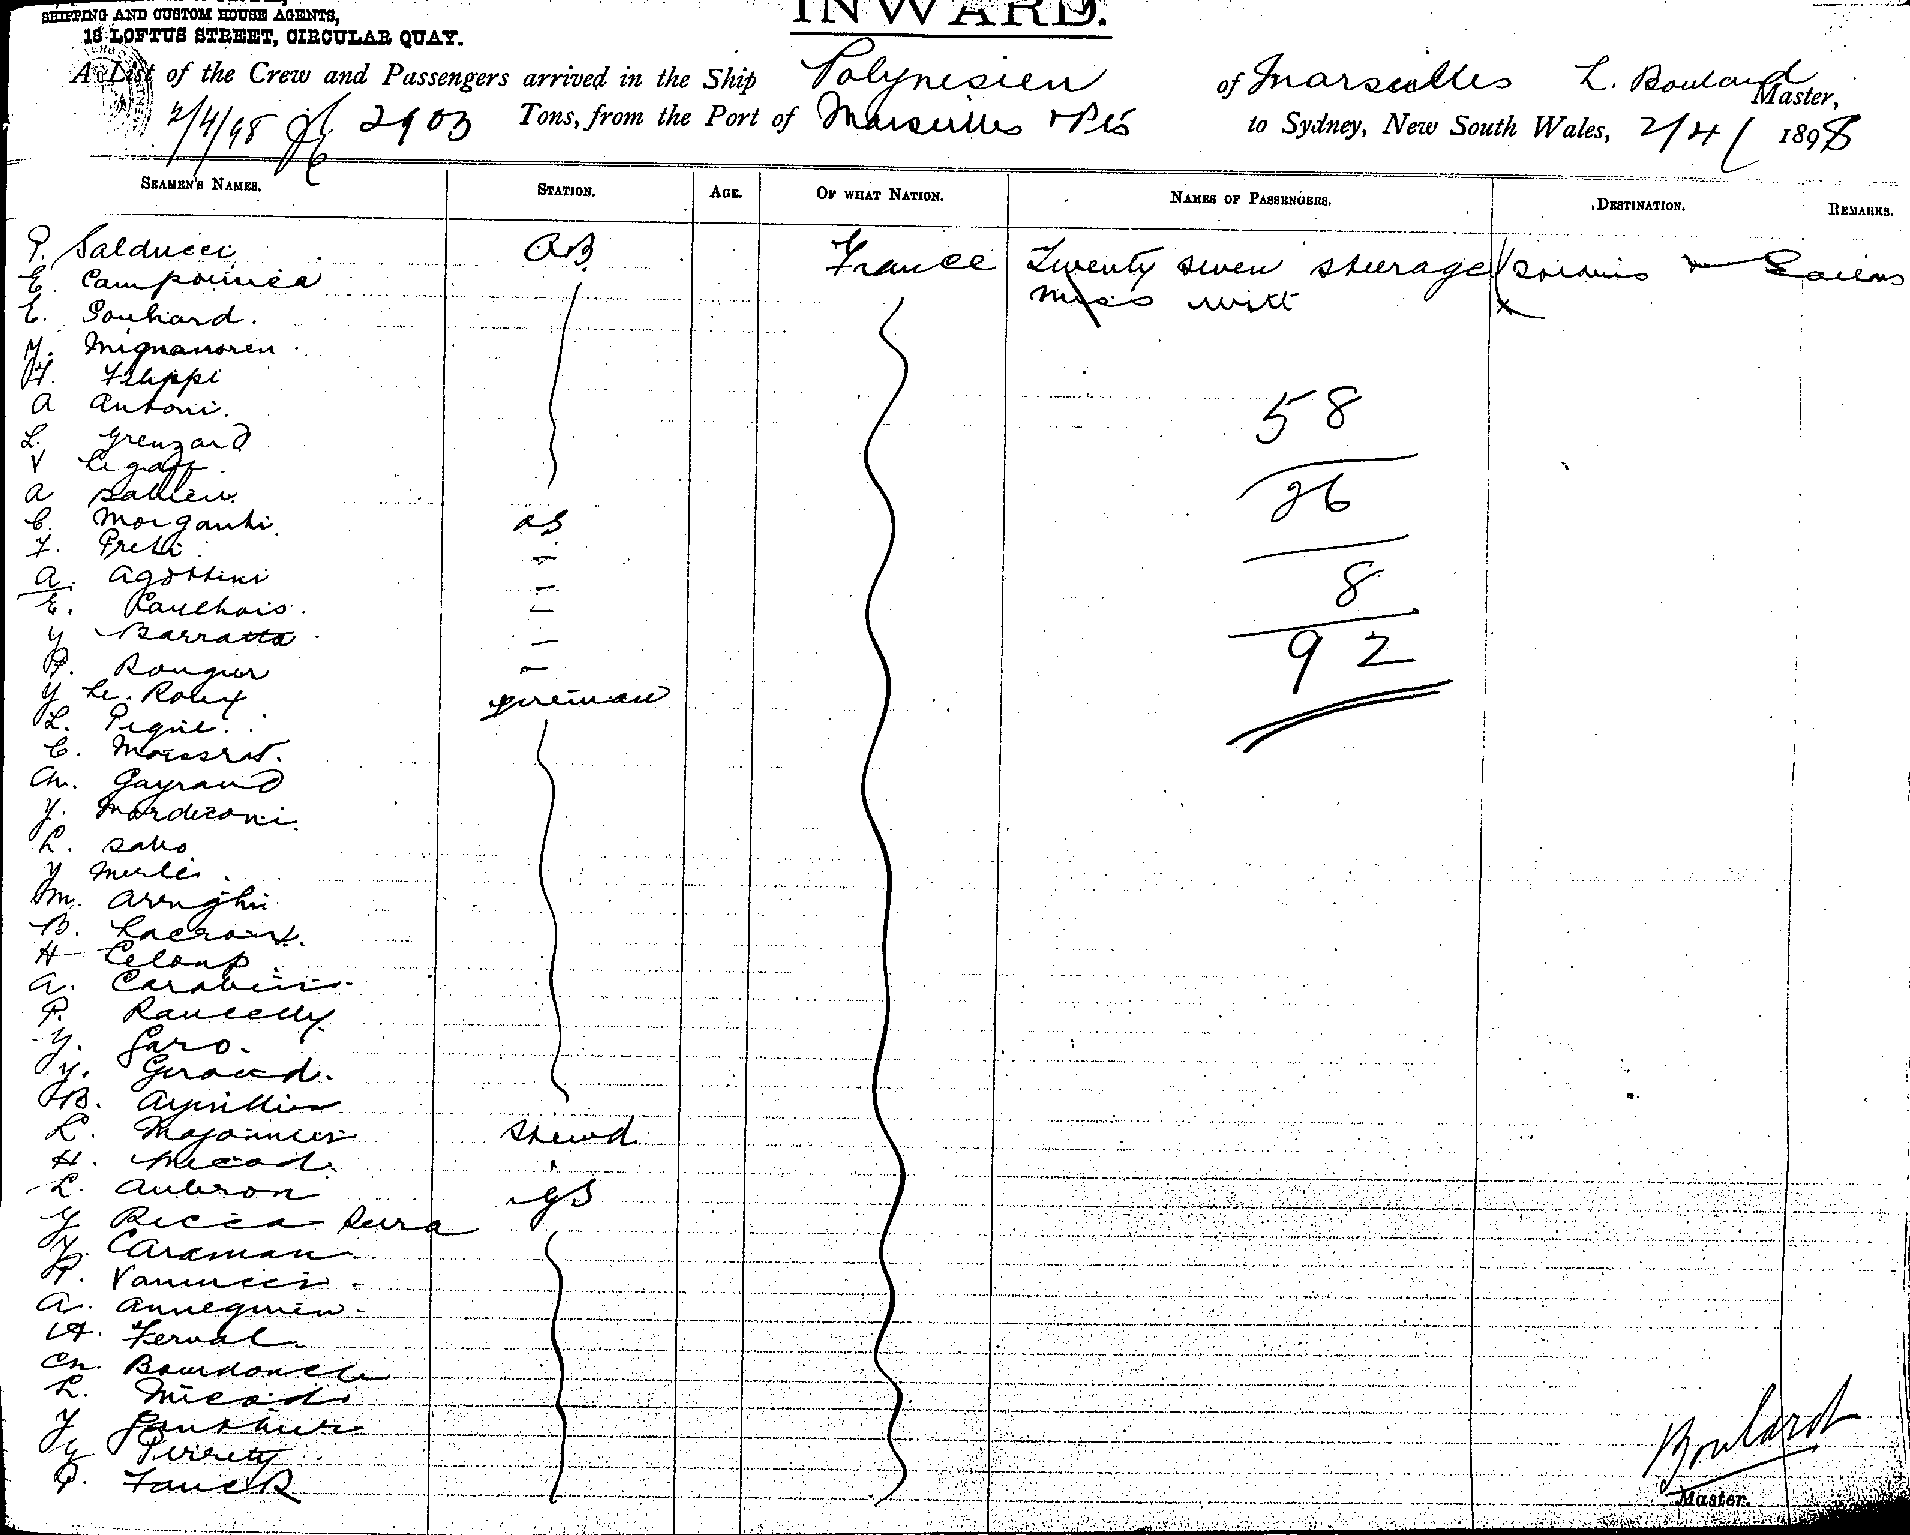 SHIPPING AND CUSTOM HOUSE AGENTS,
18 LOFTUS STREET, CIRCULAR QUAY.
INWARD.
A List of the Crew and Passengers arrived in the Ship Polynesien of Marseilles L. Boulard Master,
2/4/98 2903 Tons, from the Port of Marseilles & Pts to Sydney, New South Wales, 2/4/ 1898
SEAMEN'S NAMES. STATION. AGE. OF WHAT NATION. NAMES OF PASSENGERS. DESTINATION. REMARKS.
P. Salducci AB France Twenty seven steerage
E. Miss Witt
E. Pouhard.
Filippi
A Antoni. 58
L. Grenzard
V Legaff
A 26
C. Morganti. OS
F. Preti
A. Agostini 8
E. Lauchois.
Y Barratta 92
P. Rougier
Y Le Roux fireman
L. Pigne.
C.
M. Gayraud
Y. Mordiconi.
L. Salio
Y Merle
M. Arrighi
B. Lacroix.
H Celoup
A. Carabini
P. Raucelly
Y. Garo.
Y. Giraud.
B.
L. Majounier Stewd
H. Micod.
L. Aubron GS
Y Bicca Serra
Y. Caraman
P. Vanucci
A. Annequin
A. Ferval
M. Bourdoncle
L. Micod
Y Gauthier
Y Perrety
P. Fanck
Boulard
Master.